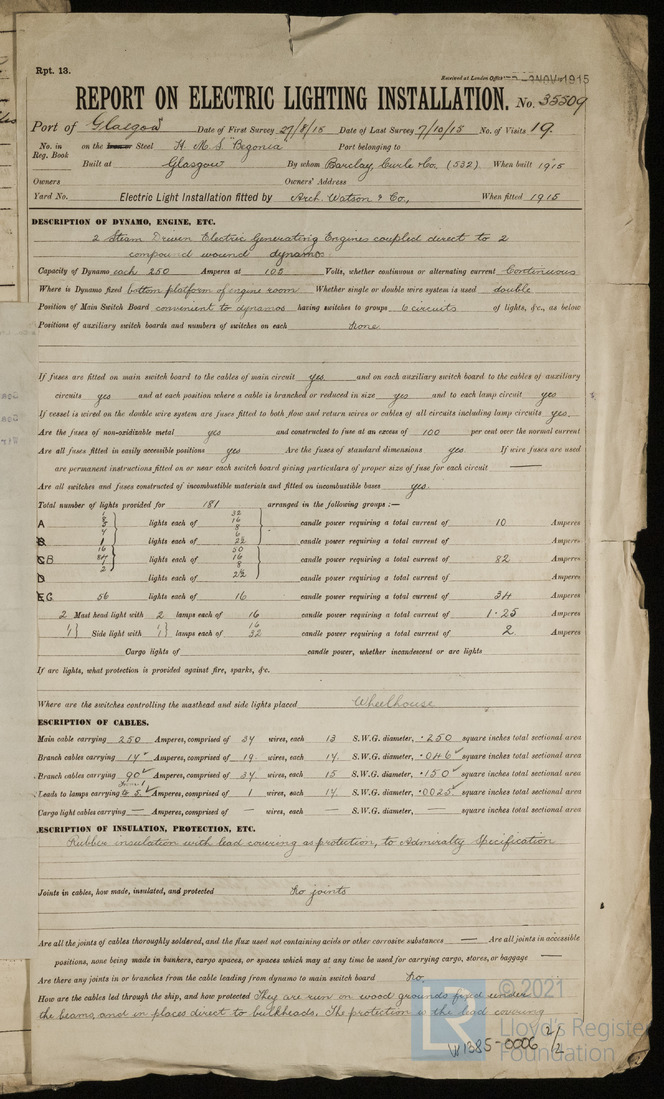 Rpt. 13.
Received at London Office NOV 1915
REPORT ON ELECTRIC LIGHTING INSTALLATION. No. 35509
Port of Glasgow Date of First Survey 27/8/15 Date of Last Survey 7/10/15 No. of Visits 19.
No. in Reg. Book on the Iron or Steel H. M. S "Begonia" Port belonging to
Built at Glasgow By whom Barclay, Curle & Co. (532) When built 1915
Owners Owners' Address
Yard No. Electric Light Installation fitted by Arch. Watson & Co., When fitted 1915
DESCRIPTION OF DYNAMO, ENGINE, ETC.
2 Steam Driven Electric Generating Engines coupled direct to 2
compound wound dynamos
Capacity of Dynamo each 250 Amperes at 100 Volts, whether continuous or alternating current Continuous
Where is Dynamo fixed bottom platform of engine room Whether single or double wire system is used double
Position of Main Switch Board convenient to dynamos having switches to groups 6 circuits of lights, &c., as below
Positions of auxiliary switch boards and numbers of switches on each None
If fuses are fitted on main switch board to the cables of main circuit yes and on each auxiliary switch board to the cables of auxiliary
circuits yes and at each position where a cable is branched or reduced in size yes and to each lamp circuit yes
If vessel is wired on the double wire system are fuses fitted to both flow and return wires or cables of all circuits including lamp circuits yes.
Are the fuses of non-oxidizable metal yes and constructed to fuse at an excess of 100 per cent over the normal current
Are all fuses fitted in easily accessible positions yes Are the fuses of standard dimensions yes. If wire fuses are used
are permanent instructions fitted on or near each switch board giving particulars of proper size of fuse for each circuit —
Are all switches and fuses constructed of incombustible materials and fitted on incombustible bases yes.
Total number of lights provided for 181 arranged in the following groups :—
A lights each of 32 16 8 candle power requiring a total current of 10 Amperes
B lights each of 22 candle power requiring a total current of Amperes
C B 16 lights each of 50 16 8 candle power requiring a total current of 82 Amperes
D 2 lights each of 2½ candle power requiring a total current of Amperes
E C. 56 lights each of 16 candle power requiring a total current of 34 Amperes
2 Mast head light with 2 lamps each of 16 candle power requiring a total current of 1·25 Amperes
1/1 Side light with 1/1 lamps each of 16 32 candle power requiring a total current of 2 Amperes
Cargo lights of candle power, whether incandescent or arc lights
If arc lights, what protection is provided against fire, sparks, &c.
Where are the switches controlling the masthead and side lights placed Wheelhouse
ESCRIPTION OF CABLES.
Main cable carrying 250 Amperes, comprised of 37 wires, each 13 S.W.G. diameter, ·250 square inches total sectional area
Branch cables carrying 14 Amperes, comprised of 19 wires, each 17. S.W.G. diameter, ·046 square inches total sectional area
Branch cables carrying 90 Amperes, comprised of 37 wires, each 15 S.W.G. diameter, ·150 square inches total sectional area
Leads to lamps carrying from 1 to 5 Amperes, comprised of 1 wires, each 17. S.W.G. diameter, ·0025 square inches total sectional area
Cargo light cables carrying — Amperes, comprised of — wires, each — S.W.G. diameter, — square inches total sectional area
ESCRIPTION OF INSULATION, PROTECTION, ETC.
Rubber insulation with lead covering as protection, to Admiralty Specification
Joints in cables, how made, insulated, and protected No joints
Are all the joints of cables thoroughly soldered, and the flux used not containing acids or other corrosive substances — Are all joints in accessible
positions, none being made in bunkers, cargo spaces, or spaces which may at any time be used for carrying cargo, stores, or baggage —
Are there any joints in or branches from the cable leading from dynamo to main switch board No.
How are the cables led through the ship, and how protected They are run on wood grounds fixed under
the beams, and in places direct to bulkheads. The protection is the lead covering
© 2021
LR Lloyd's Register
Foundation
W1385-0006 2/2